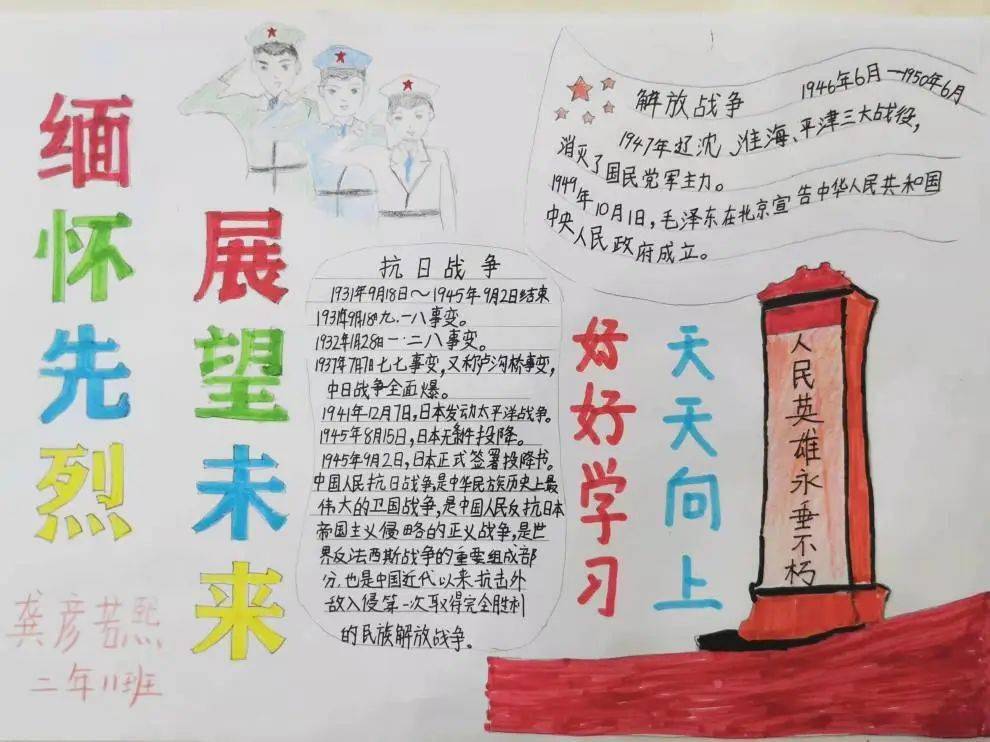 缅怀先烈
展望未来
解放战争
1946年6月—1950年6月
1947年辽沈、淮海、平津三大战役,
消灭了国民党军主力。
1949年10月1日,毛泽东在北京宣告中华人民共和国
中央人民政府成立。
抗日战争
1931年9月18日～1945年9月2日结束
1931年9月18日九·一八事变。
1932年1月28日一·二八事变。
1937年7月7日七七事变,又称卢沟桥事变,
中日战争全面爆。
1941年12月7日,日本发动太平洋战争。
1945年8月15日,日本无条件投降。
1945年9月2日,日本正式签署投降书。
中国人民抗日战争,是中华民族历史上最
伟大的卫国战争,是中国人民反抗日本
帝国主义侵略的正义战争,是世
界反法西斯战争的重要组成部
分,也是中国近代以来抗击外
敌入侵第一次取得完全胜利
的民族解放战争。
好好学习
天天向上
人民英雄永垂不朽
龚彦若熙
二年11班